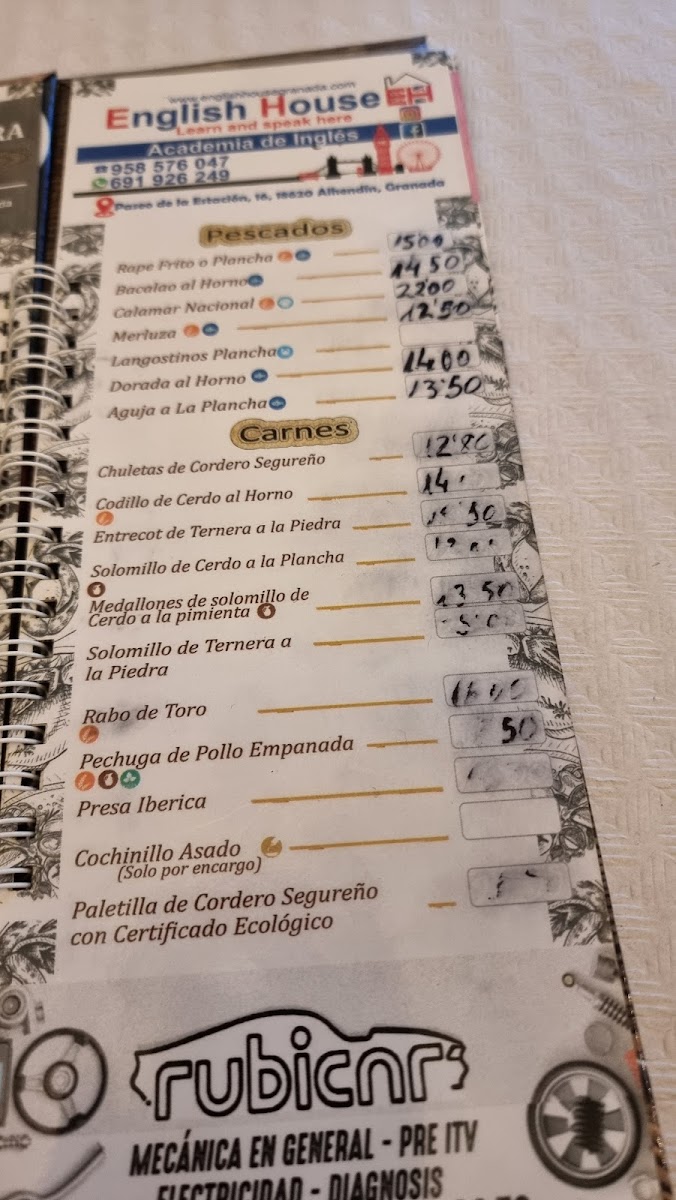 RA
www.englishousegranada.com
English House EH
Learn and speak here
Academia de Inglés
958 576 047
691 926 249
Paseo de la Estación, 16, 18620 Alhendín, Granada
Pescados
Rape Frito o Plancha 1500
Bacalao al Horno 14 50
Calamar Nacional 2200
Merluza 12'50
Langostinos Plancha
Dorada al Horno 1400
Aguja a La Plancha 13'50
Carnes
Chuletas de Cordero Segureño 12'80
Codillo de Cerdo al Horno 14
Entrecot de Ternera a la Piedra 50
Solomillo de Cerdo a la Plancha
Medallones de solomillo de
Cerdo a la pimienta 13 50
Solomillo de Ternera a
la Piedra
Rabo de Toro
Pechuga de Pollo Empanada 50
Presa Iberica
Cochinillo Asado
(Solo por encargo)
Paletilla de Cordero Segureño
con Certificado Ecológico
rubicar
MECÁNICA EN GENERAL - PRE ITV
ELECTRICIDAD - DIAGNOSIS